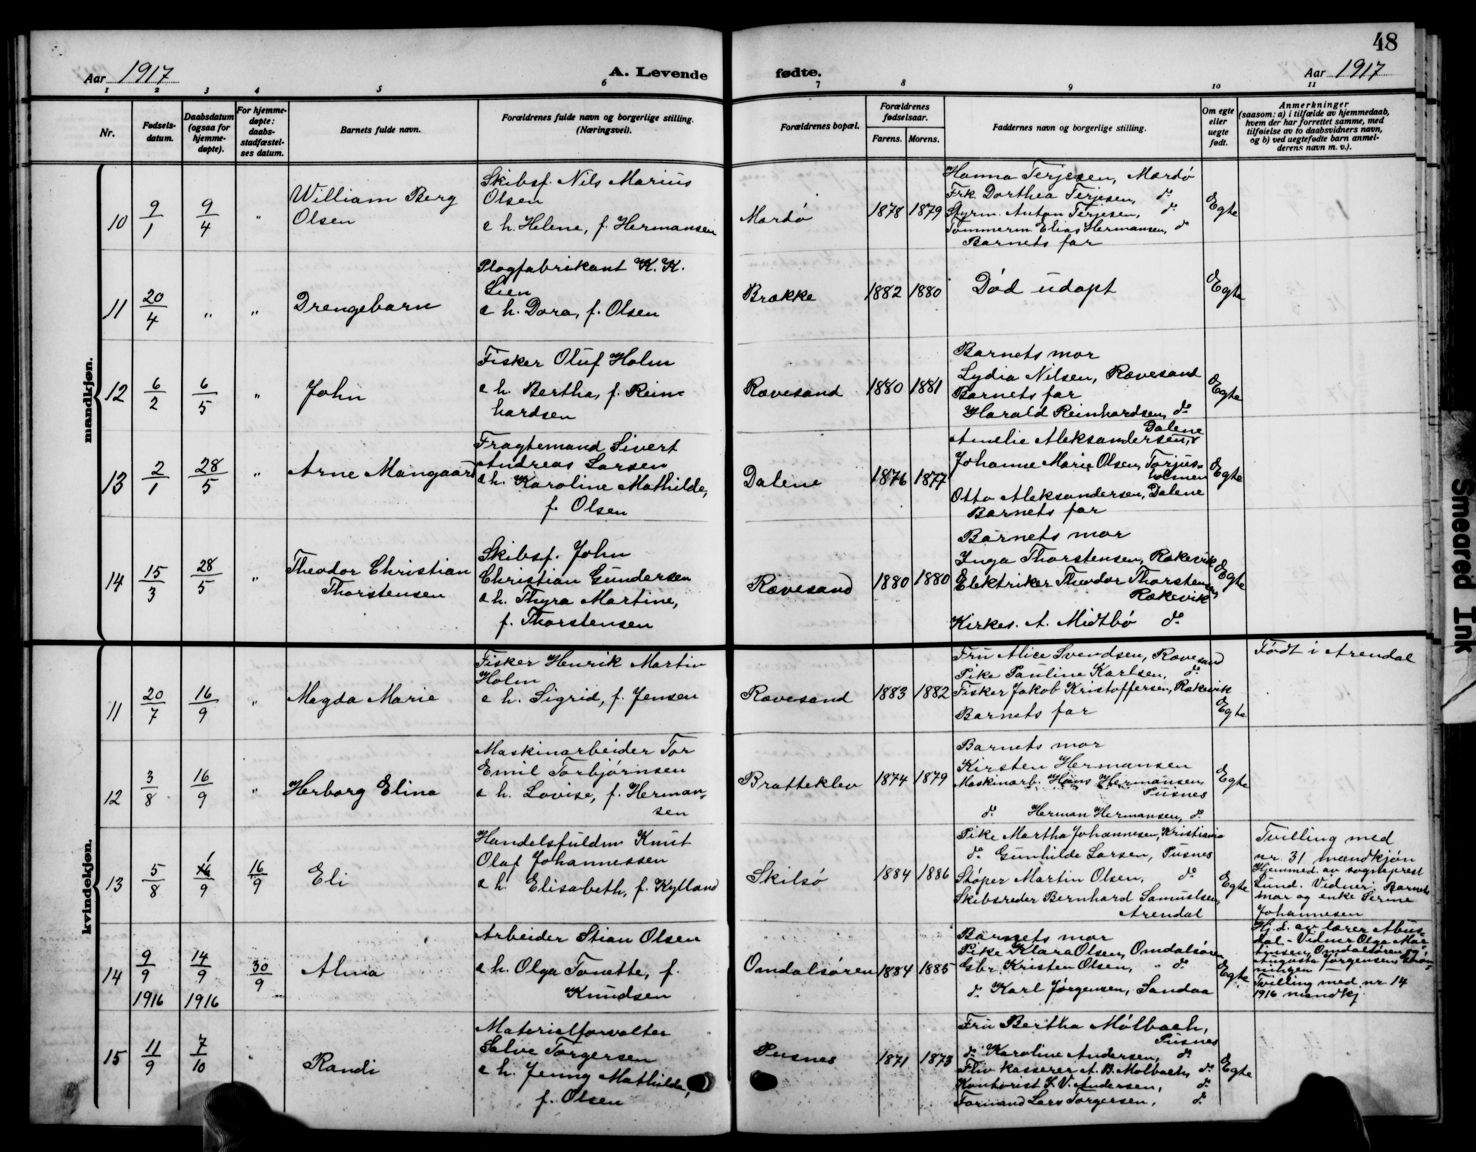 48
Aar 1917
A. Levende fødte.
Aar 1917
1 2 3 4 5 6 7 8 9 10 11
Nr.
Fødsels-
datum.
Daabsdatum
(ogsaa for
hjemme-
døpte).
For hjemme-
døpte:
daabs-
stadfæstel-
ses datum.
Barnets fulde navn.
Forældrenes fulde navn og borgerlige stilling.
(Næringsvei).
Forældrenes bopæl.
Forældrenes
fødselsaar.
Farens. Morens.
Faddernes navn og borgerlige stilling.
Om egte
eller
uegte
født.
Anmerkninger
(saasom: a) i tilfælde av hjemmedaab,
hvem der har forrettet samme, med
tilføielse av to daabsvidners navn,
og b) ved uegtefødte barn anmel-
derens navn m. v.).
mandkjøn.
10
9/1
9/4
"
William Berg
Olsen
Skibsf. Nils Marius
Olsen
e h. Helene, f. Hermansen
Mardø
1878 1879
Hanna Terjesen, Mardø
Frk Dorthea Terjesen, do
Styrm. Anton Terjesen, do
Tømmerm Elias Hermansen, do
Barnets far
Egte
11
20/4
"
"
Drengebarn
Plogfabrikant K. K.
Lien
e h. Dora, f. Olsen
Brække
1882 1880
Død udøpt
Egte
12
6/2
6/5
"
John
Fisker Oluf Holm
e h. Bertha, f. Rein-
hardsen
Rævesand
1880 1881
Barnets mor
Lydia Nilsen, Rævesand
Barnets far
Harald Reinhardsen, do
Egte
13
2/1
28/5
"
Arne Mangaard
Fragtemand Sivert
Andreas Larsen
e h. Karoline Mathilde,
f. Olsen
Dalene
1876 1877
Amelie Aleksandersen, Dalene
Johanne Marie Olsen, Torjus-
holmen
Otto Aleksandersen, Dalene
Barnets far
Egte
14
15/3
28/5
"
Theodor Christian
Thorstensen
Skibsf. John
Christian Gundersen
e h. Thyra Martine,
f. Thorstensen
Rævesand
1880 1880
Barnets mor
Inga Thorstensen, Rækevik
Elektriker Theodor Thorstensen,
Rækevik
Kirkes. A. Midtbø do
Egte
kvindekjøn.
11
20/7
16/9
"
Magda Marie
Fisker Henrik Martin
Holm
e h. Sigrid, f. Jensen
Rævesand
1883 1882
Fru Alice Svendsen, Rævesand
Pike Pauline Karlsen, do
Fisker Jakob Kristoffersen, Rækevik
Barnets far
Egte
Født i Arendal
12
3/8
16/9
"
Herborg Eline
Maskinarbeider Tor
Emil Torbjørnsen
e h. Lovise, f. Herman-
sen
Bratteklev
1874 1879
Barnets mor
Kirsten Hermansen
Maskinarb. Hans Hermansen,
Pusnes
do Herman Hermansen, do
Egte
13
5/8
1/9
16/9
Eli
Handelsfuldm Knut
Olaf Johannessen
e h. Elisabeth, f. Kylland
Skilsø
1884 1886
Pike Martha Johannesen, Kristiania
do Gunhilde Larsen, Pusnes
Støper Martin Olsen, do
Skibsreder Bernhard Samuelsen,
Arendal
Egte
Tvilling med
nr. 31 mandkjøn
Hjemmed. av sogneprest
Lund. Vidner: Barnets
mor og enke Serine
Johannesen
14
9/9
1916
14/9
1916
30/9
Alma
Arbeider Stian Olsen
e h. Olga Tonette, f.
Knudsen
Omdalsøren
1884 1885
Barnets mor
Pike Klara Olsen, Omdalsøren
Gbr. Kristen Olsen, do
do Karl Jørgensen, Sandaa
Egte
Hj. d. av lærer
Tvilling med nr. 14
1916 mandkj.
15
11/9
7/10
"
Randi
Materialforvalter
Salve Torgersen
e h. Jenny Mathilde,
f. Olsen
Pusnes
1871 1873
Fru Bertha Mølbach,
Pusnes
do Karoline Andersen, do
Fliv kasserer A. B. Mølbach, do
Kontorist L. V. Andersen, do
Formand Lars Torgersen, do
Egte
Smeared Ink